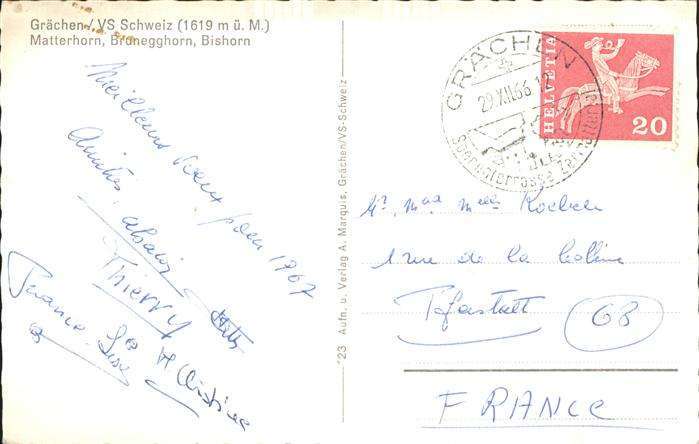 Grächen/VS Schweiz (1619 m ü. M.)
Matterhorn, Brunegghorn, Bishorn
Meilleurs Voeux pour 1967
Amitiés
Thierry
France-Lise
Christine
'23 Aufn. u. Verlag A. Marquis, Grächen/VS-Schweiz
GRÄCHEN
29.XII.66 12
Sonnenterrasse Zermattertal
HELVETIA
20
Mr, Mad Melle
1 rue de la Colline
Pfastatt 68
FRANCE